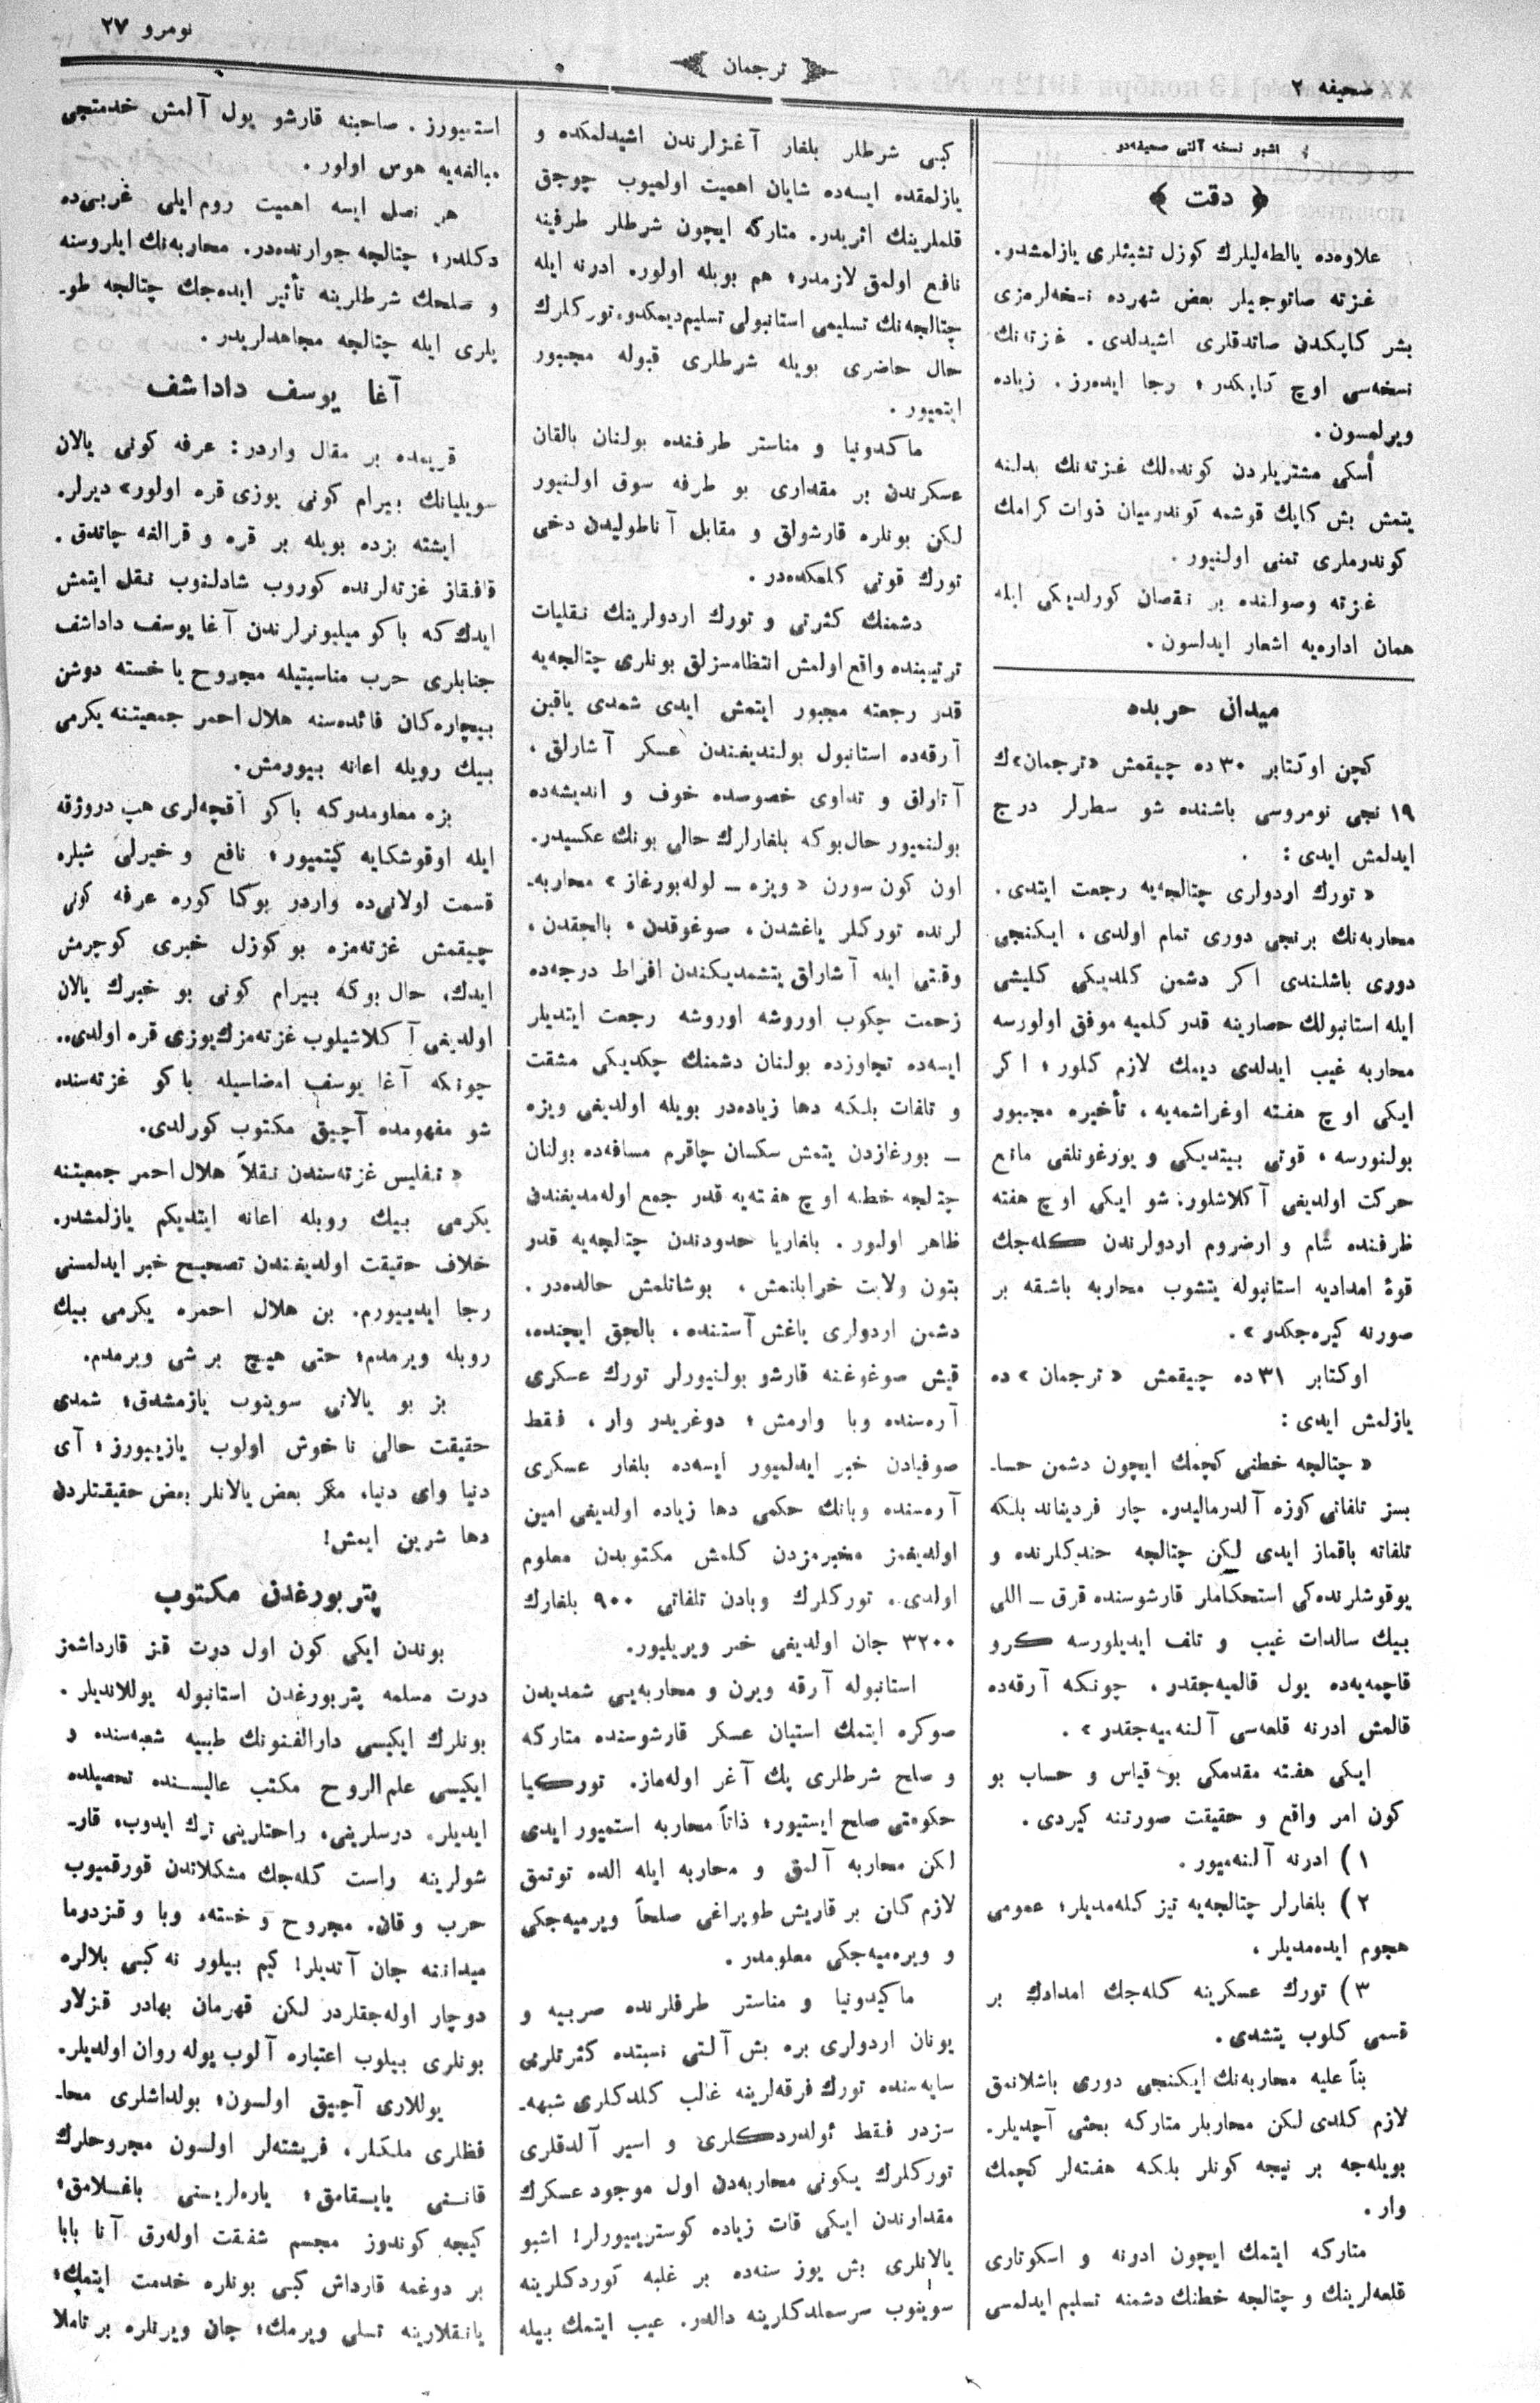 نومرو ۲۷
ترجمان
صحیفه ۲
اشبو نسخه آلتی صحیفه‌در
﴿ دقت ﴾
علاوه‌ده یالطه‌لیلرك كوزل تشبثلری یازلمشدر.
غزته صاتوجیلر بعض شهرده نسخه‌لرمزی
بشر كاپكدن صاتدقلری اشیدلدی. غزته‌نك
نسخه‌سی اوچ كاپكدر؛ رجا ایده‌رز. زیاده
ویرلمسون.
أسكی مشتریلردن كونده‌لك غزته‌نك بدلنه
یتمش بش كاپك قوشمه كوندرمیان ذوات كرامك
كوندرملری تمنی اولنیور.
غزته وصولنده بر نقصان كورلدیكی ایله
همان اداره‌یه اشعار ایدلسون.
میدان حربده
كچن اوكتابر ۳۰ده چیقمش «ترجمان»ك
۱۹ نجی نومروسی باشنده شو سطرلر درج
ایدلمش ایدی:
« تورك اردولری چتالجه‌یه رجعت ایتدی.
محاربه‌نك برنجی دوری تمام اولدی، ایكنجی
دوری باشلندی اكر دشمن كلدیكی كلیشی
ایله استانبولك حصارینه قدر كلمیه موفق اولورسه
محاربه غیب ایدلدی دیمك لازم كلور؛ اكر
ایكی اوچ هفته اوغراشمه‌یه، تأخیره مجبور
بولنورسه، قوتی بیتدیكی و یورغونلغی مانع
حركت اولدیغی آكلاشلور. شو ایكی اوچ هفته
ظرفنده شام و ارضروم اردولرندن كله‌جك
قوۀ امدادیه استانبوله یتشوب محاربه باشقه بر
صورته كیره‌جكدر».
اوكتابر ۳۱ده چیقمش «ترجمان» ده
یازلمش ایدی:
« چتالجه خطنی كچمك ایچون دشمن حسا-
بسز تلفاتی كوزه آلدرمالیدر. چار فردیناند بلكه
تلفاته باقماز ایدی لكن چتالجه خندكلرنده و
یوقوشلرنده‌كی استحكاملر قارشوسنده قرق ـ اللی
بیك سالدات غیب و تلف ایدیلورسه كرو
قاچمه‌یه‌ده یول قالمیه‌جقدر، چونكه آرقه‌ده
قالمش ادرنه قلعه‌سی آلنه‌میه‌جقدر».
ایكی هفته مقدمكی بو قیاس و حساب بو
كون امر واقع و حقیقت صورتنه كیردی.
۱) ادرنه آلنه‌میور.
۲) بلغارلر چتالجه‌یه تیز كله‌مدیلر؛ عمومی
هجوم ایده‌مدیلر،
۳) تورك عسكرینه كله‌جك امدادك بر
قسمی كلوب یتشدی.
بناً علیه محاربه‌نك ایكنجی دوری باشلانمق
لازم كلدی لكن محاربلر متاركه بحثی آچدیلر.
بویله‌جه بر نیجه كونلر بلكه هفته‌لر كچمك
وار.
متاركه ایتمك ایچون ادرنه و اسكوتاری
قلعه‌لرینك و چتالجه خطنك دشمنه تسلیم ایدلمسی
كبی شرطلر بلغار آغزلرندن اشیدلمكده و
یازلمقده ایسه‌ده شایان اهمیت اولمیوب چوجق
قلملرینك اثریدر. متاركه ایچون شرطلر طرفینه
نافع اولمق لازمدر؛ هم بویله اولور. ادرنه ایله
چتالجه‌نك تسلیمی استانبولی تسلیم دیمكدر، توركلرك
حال حاضری بویله شرطلری قبوله مجبور
ایتمیور.
ماكدونیا و مناستر طرفنده بولنان بالقان
عسكرندن بر مقداری بو طرفه سوق اولنیور
لكن بونلره قارشولق و مقابل آناطولیدن دخی
تورك قوتی كلمكده‌در.
دشمنك كثرتی و تورك اردولرینك نقلیات
ترتیبنده واقع اولمش انتظامسزلق بونلری چتالجه‌یه
قدر رجعته مجبور ایتمش ایدی شمدی یاقین
آرقه‌ده استانبول بولندیغندن عسكر آشارلق،
آتارلق و تداوی خصوصده خوف و اندیشه‌ده
بولنمیور حال بو كه بلغارلرك حالی بونك عكسیدر.
اون كون سورن « ویزه ـ لوله‌بورغاز» محاربه-
لرنده توركلر یاغشدن، صوغوقدن، بالچقدن،
وقتی ایله آشارلق یتشمدیكندن افراط درجه‌ده
زحمت چكوب اوروشه اوروشه رجعت ایتدیلر
ایسه‌ده تجاوزده بولنان دشمنك چكدیكی مشقت
و تلفات بلكه دها زیاده‌در بویله اولدیغی ویزه
ـ بورغازدن یتمش سكسان چاقرم مسافه‌ده بولنان
چتالجه خطنه اوچ هفته‌یه قدر جمع اوله‌مدیغندن
ظاهر اولیور. بلغاریا حدودندن چتالجه‌یه قدر
بتون ولایت خرابلنمش، بوشاتلمش حالده‌در.
دشمن اردولری یاغش آستنده، بالچق ایچنده،
قیش صوغوغنه قارشو بولنیورلر تورك عسكری
آره‌سنده وبا وارمش؛ دوغریدر وار، فقط
صوفیادن خبر ایدلمیور ایسه‌ده بلغار عسكری
آره‌سنده وبانك حكمی دها زیاده اولدیغی امین
اولدیغمز مخبرمزدن كلمش مكتوبدن معلوم
اولدی. توركلرك وبادن تلفاتی ۹۰۰ بلغارك
۳۲۰۰ جان اولدیغی خبر ویریلیور.
استانبوله آرقه ویرن و محاربه‌یی شمدیدن
صوكره ایتمك استیان عسكر قارشوسنده متاركه
و صلح شرطلری پك آغر اوله‌ماز. توركیا
حكومتی صلح ایستیور؛ ذاتاً محاربه استمیور ایدی
لكن محاربه آلمق و محاربه ایله الده توتمق
لازم كان بر قاریش طوپراغی صلحاً ویرمیه‌جكی
و ویره‌میه‌جكی معلومدر.
ماكیدونیا و مناستر طرفلرنده صربیه و
یونان اردولری بره بش آلتی نسبتده كثرتلری
سایه‌سنده تورك فرقه‌لرینه غالب كلدكلری شبهه-
سزدر فقط ئولدردكلری و اسیر آلدقلری
توركلرك یكونی محاربه‌دن اول موجود عسكرك
مقدارندن ایكی قات زیاده كوستریبیورلر! اشبو
یالانلری بش یوز سنه‌ده بر غلبه كوردكلرینه
سوینوب سرسملدكلرینه دالدر. عیب ایتمك بیله
استمیورز. صاحبنه قارشو یول آلمش خدمتچی
مبالغه‌یه هوس اولور.
هر نصل ایسه اهمیت روم ایلی غربی‌ده
دكلدر؛ چتالجه جوارنده‌در. محاربه‌نك ایلروسنه
و صلحك شرطلرینه تأثیر ایده‌جك چتالجه طو-
پلری ایله چتالجه مجاهدلریدر.
آغا یوسف داداشف
قریمده بر مقال واردر: عرفه كونی یالان
سویلیانك بیرام كونی یوزی قره اولور» دیرلر.
ایشته بزده بویله بر قره و قرالغه چاتدق.
قافقاز غزته‌لرنده كوروب شادلنوب نقل ایتمش
ایدك كه باكو میلیونرلرندن آغا یوسف داداشف
جنابلری حرب مناسبتیله مجروح یا خسته دوشن
بیچاره‌كان فائده‌سنه هلال احمر جمعیتنه یكرمی
بیك روبله اعانه بیورمش.
بزه معلومدركه باكو آقچه‌لری هپ دروژقه
ایله اوقوشكایه كیتمیور؛ نافع و خیرلی شیلره
قسمت اولانی‌ده واردر بوكا كوره عرفه كونی
چیقمش غزته‌مزه بو كوزل خبری كوچرمش
ایدك، حال بوكه بیرام كونی بو خبرك یالان
اولدیغی آكلاشیلوب غزته‌مزك یوزی قره اولدی..
چونكه آغا یوسف امضاسیله باكو غزته‌سنده
شو مفهومده آچیق مكتوب كورلدی.
« تفلیس غزته‌سندن نقلاً هلال احمر جمعیتنه
یكرمی بیك روبله اعانه ایتدیكم یازلمشدر.
خلاف حقیقت اولدیغندن تصحیح خبر ایدلمسنی
رجا ایدییورم. بن هلال احمره یكرمی بیك
روبله ویرمدم؛ حتی هیچ بر شی ویرمدم.
بز بو یالانی سوینوب یازمشدق؛ شمدی
حقیقت حالی ناخوش اولوب یازییورز؛ آی
دنیا وای دنیا. مكر بعض یالانلر بعض حقیقتلردن
دها شرین ایمش!
پتربورغدن مكتوب
بوندن ایكی كون اول درت قز قارداشمز
درت مسلمه پتربورغدن استانبوله یوللاندیلر.
بونلرك ایكیسی دارالفنونك طبیه شعبه‌سنده و
ایكیسی علم‌الروح مكتب عالیسنده تحصیلده
ایدیلر. درسلرینی، راحتلرینی ترك ایدوب، قار-
شولرینه راست كله‌جك مشكلاتدن قورقمیوب
حرب و قان. مجروح و خسته، وبا و قزدرما
میداننه جان آتدیلر! كیم بیلور نه كبی بلالره
دوچار اوله‌جقلردر لكن قهرمان بهادر قزلار
بونلری بیلوب اعتباره آلوب یوله روان اولدیلر.
یوللاری آچیق اولسون؛ یولداشلری محا-
فظلری ملكلر، فریشته‌لر اولسون مجروحلرك
قاننی یابسقامق؛ یاره‌لرینی باغلامق؛
كیجه كوندوز مجسم شفقت اوله‌رق آنا بابا
بر دوغمه قارداش كبی بونلره خدمت ایتمك؛
یانقلارینه تسلی ویرمك؛ جان ویرنلره بر تاملا